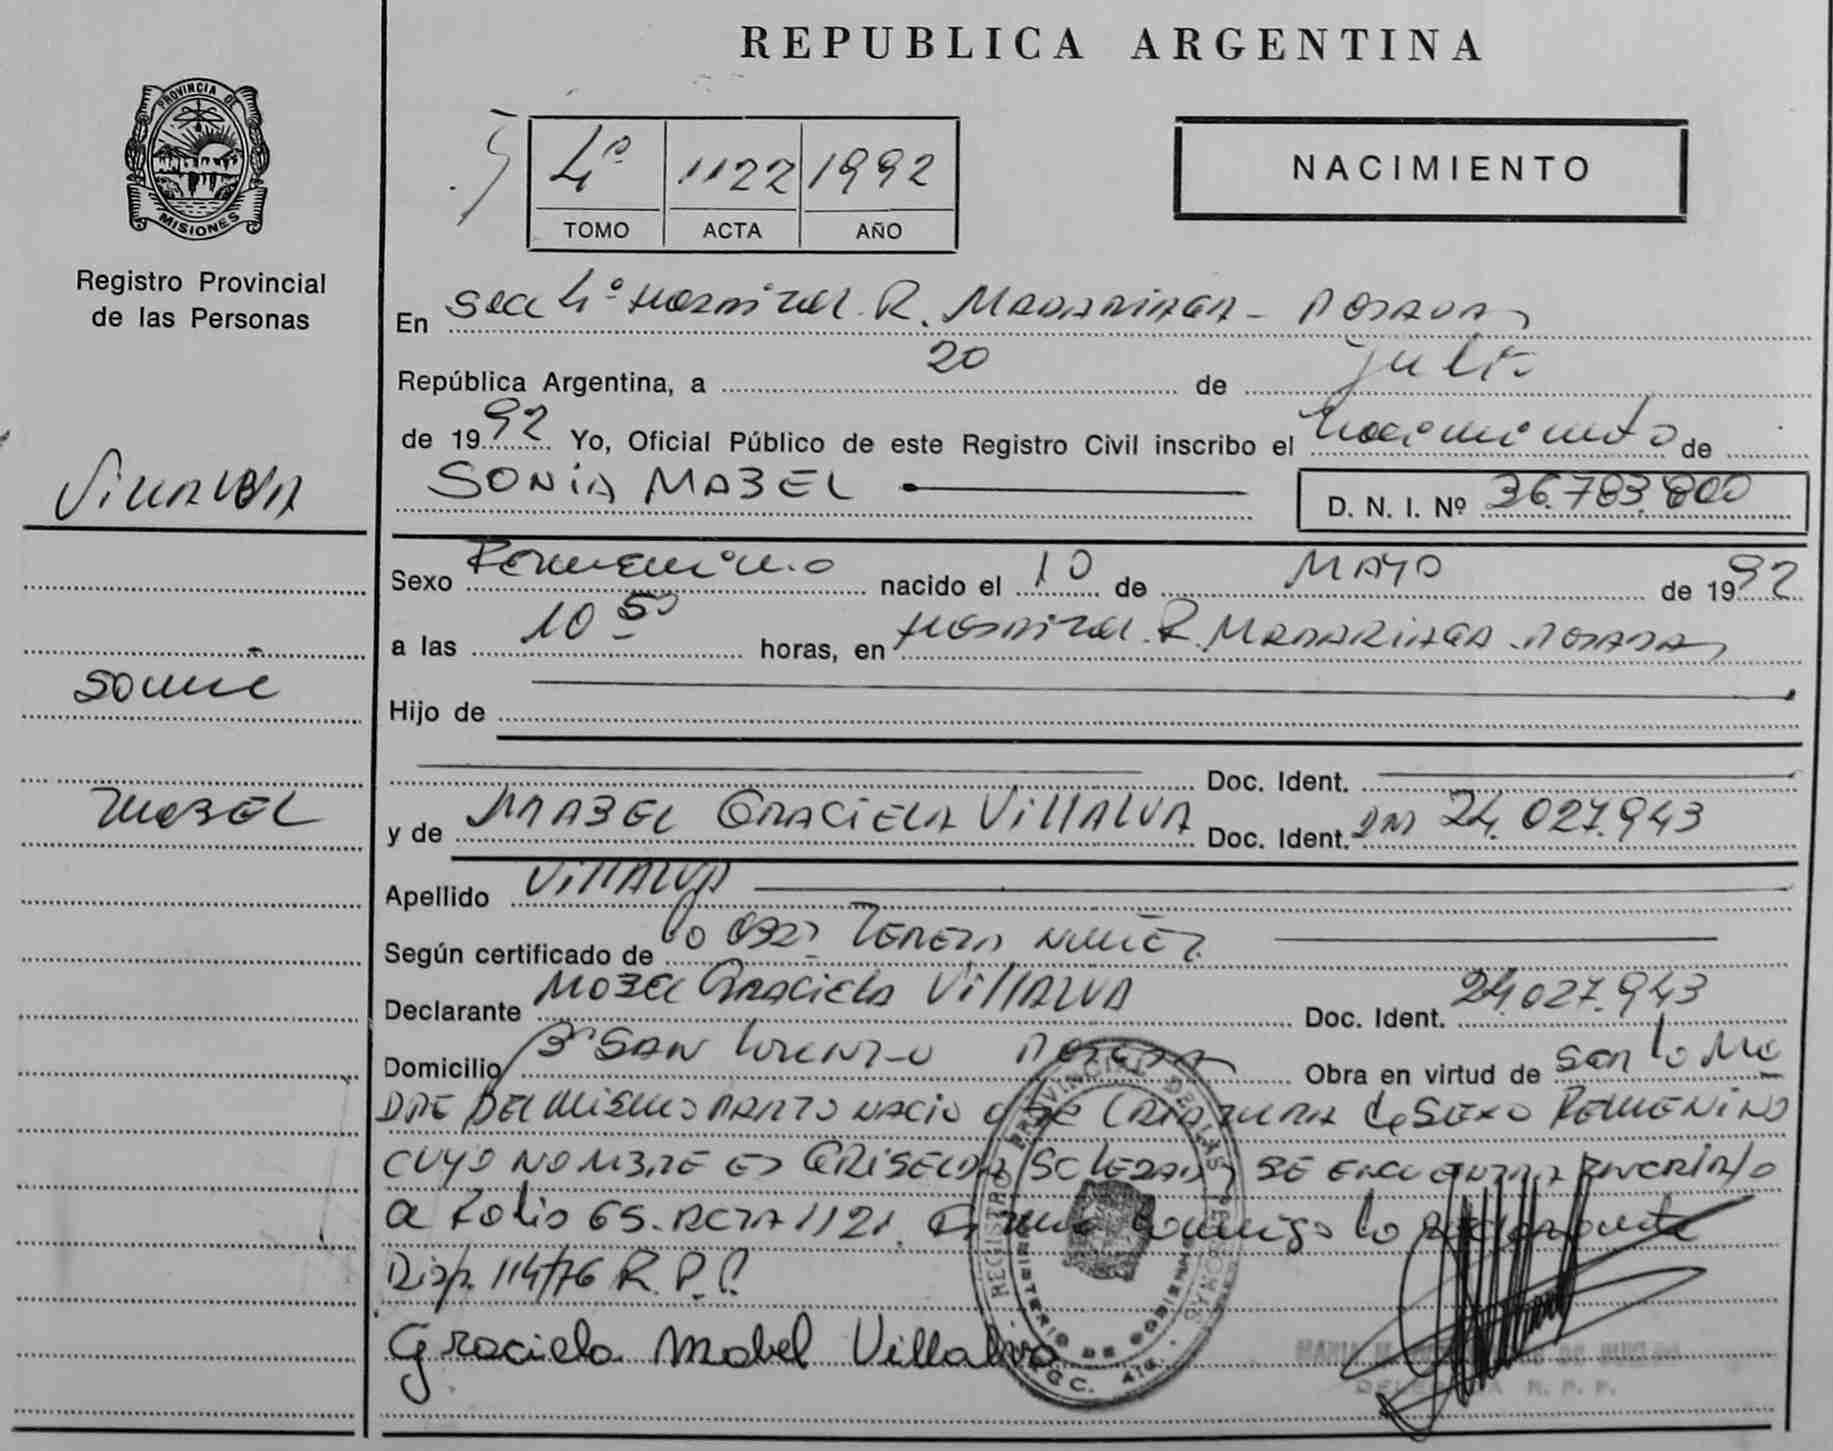 REPUBLICA ARGENTINA
PROVINCIA DE
MISIONES
Registro Provincial
de las Personas
4º 1122 1992
TOMO ACTA AÑO
NACIMIENTO
En Secc 4º Hospital R. MADARIAGA - POSADAS
República Argentina, a 20 de julio
de 1992 Yo, Oficial Público de este Registro Civil inscribo el nacimiento de
SONIA MABEL
D. N. I. Nº 36.783.800
VILLALVA
Sexo Femenino nacido el 10 de MAYO de 1992
a las 10 50 horas, en Hospital R. MADARIAGA - POSADAS
SONIA
Hijo de
Doc. Ident.
MABEL
y de MABEL GRACIELA VILLALVA Doc. Ident. DNI 24.027.943
Apellido VILLALVA
Según certificado de TEREZA NUÑEZ
Declarante MABEL GRACIELA VILLALVA Doc. Ident. 24.027.943
Domicilio Bº SAN LORENZO POSADAS Obra en virtud de ser la MA
DRE DEL MISMO PARTO NACIO CRIATURA de SEXO FEMENINO
CUYO NOMBRE ES GRISELDA SOLEDAD SE ENCUENTRA INSCRIPTO
a Folio 65. ACTA 1121. Firma conmigo la declarante
Disp. 114/76 R. P. P.
Graciela Mabel Villalva
REGISTRO PROVINCIAL DE LAS PERSONAS
MINISTERIO DE GOBIERNO
DELEGADA R. P. P.